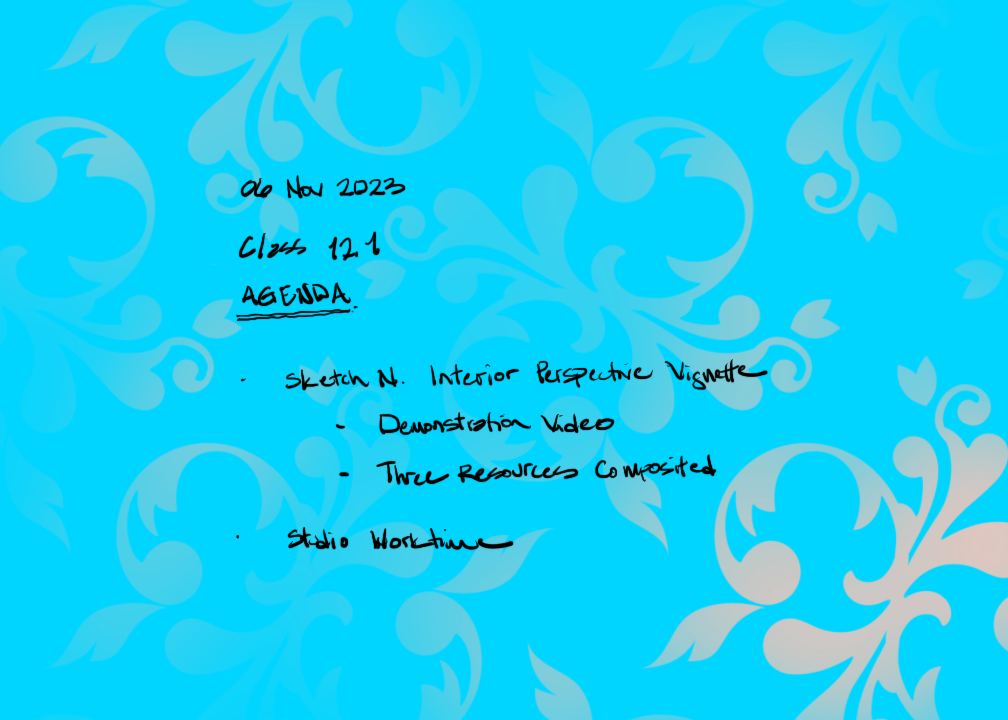 06 Nov 2023
Class 12.1
AGENDA
· Sketch N. Interior Perspective Vignette
- Demonstration Video
- Three Resources Composited
· Studio Worktime